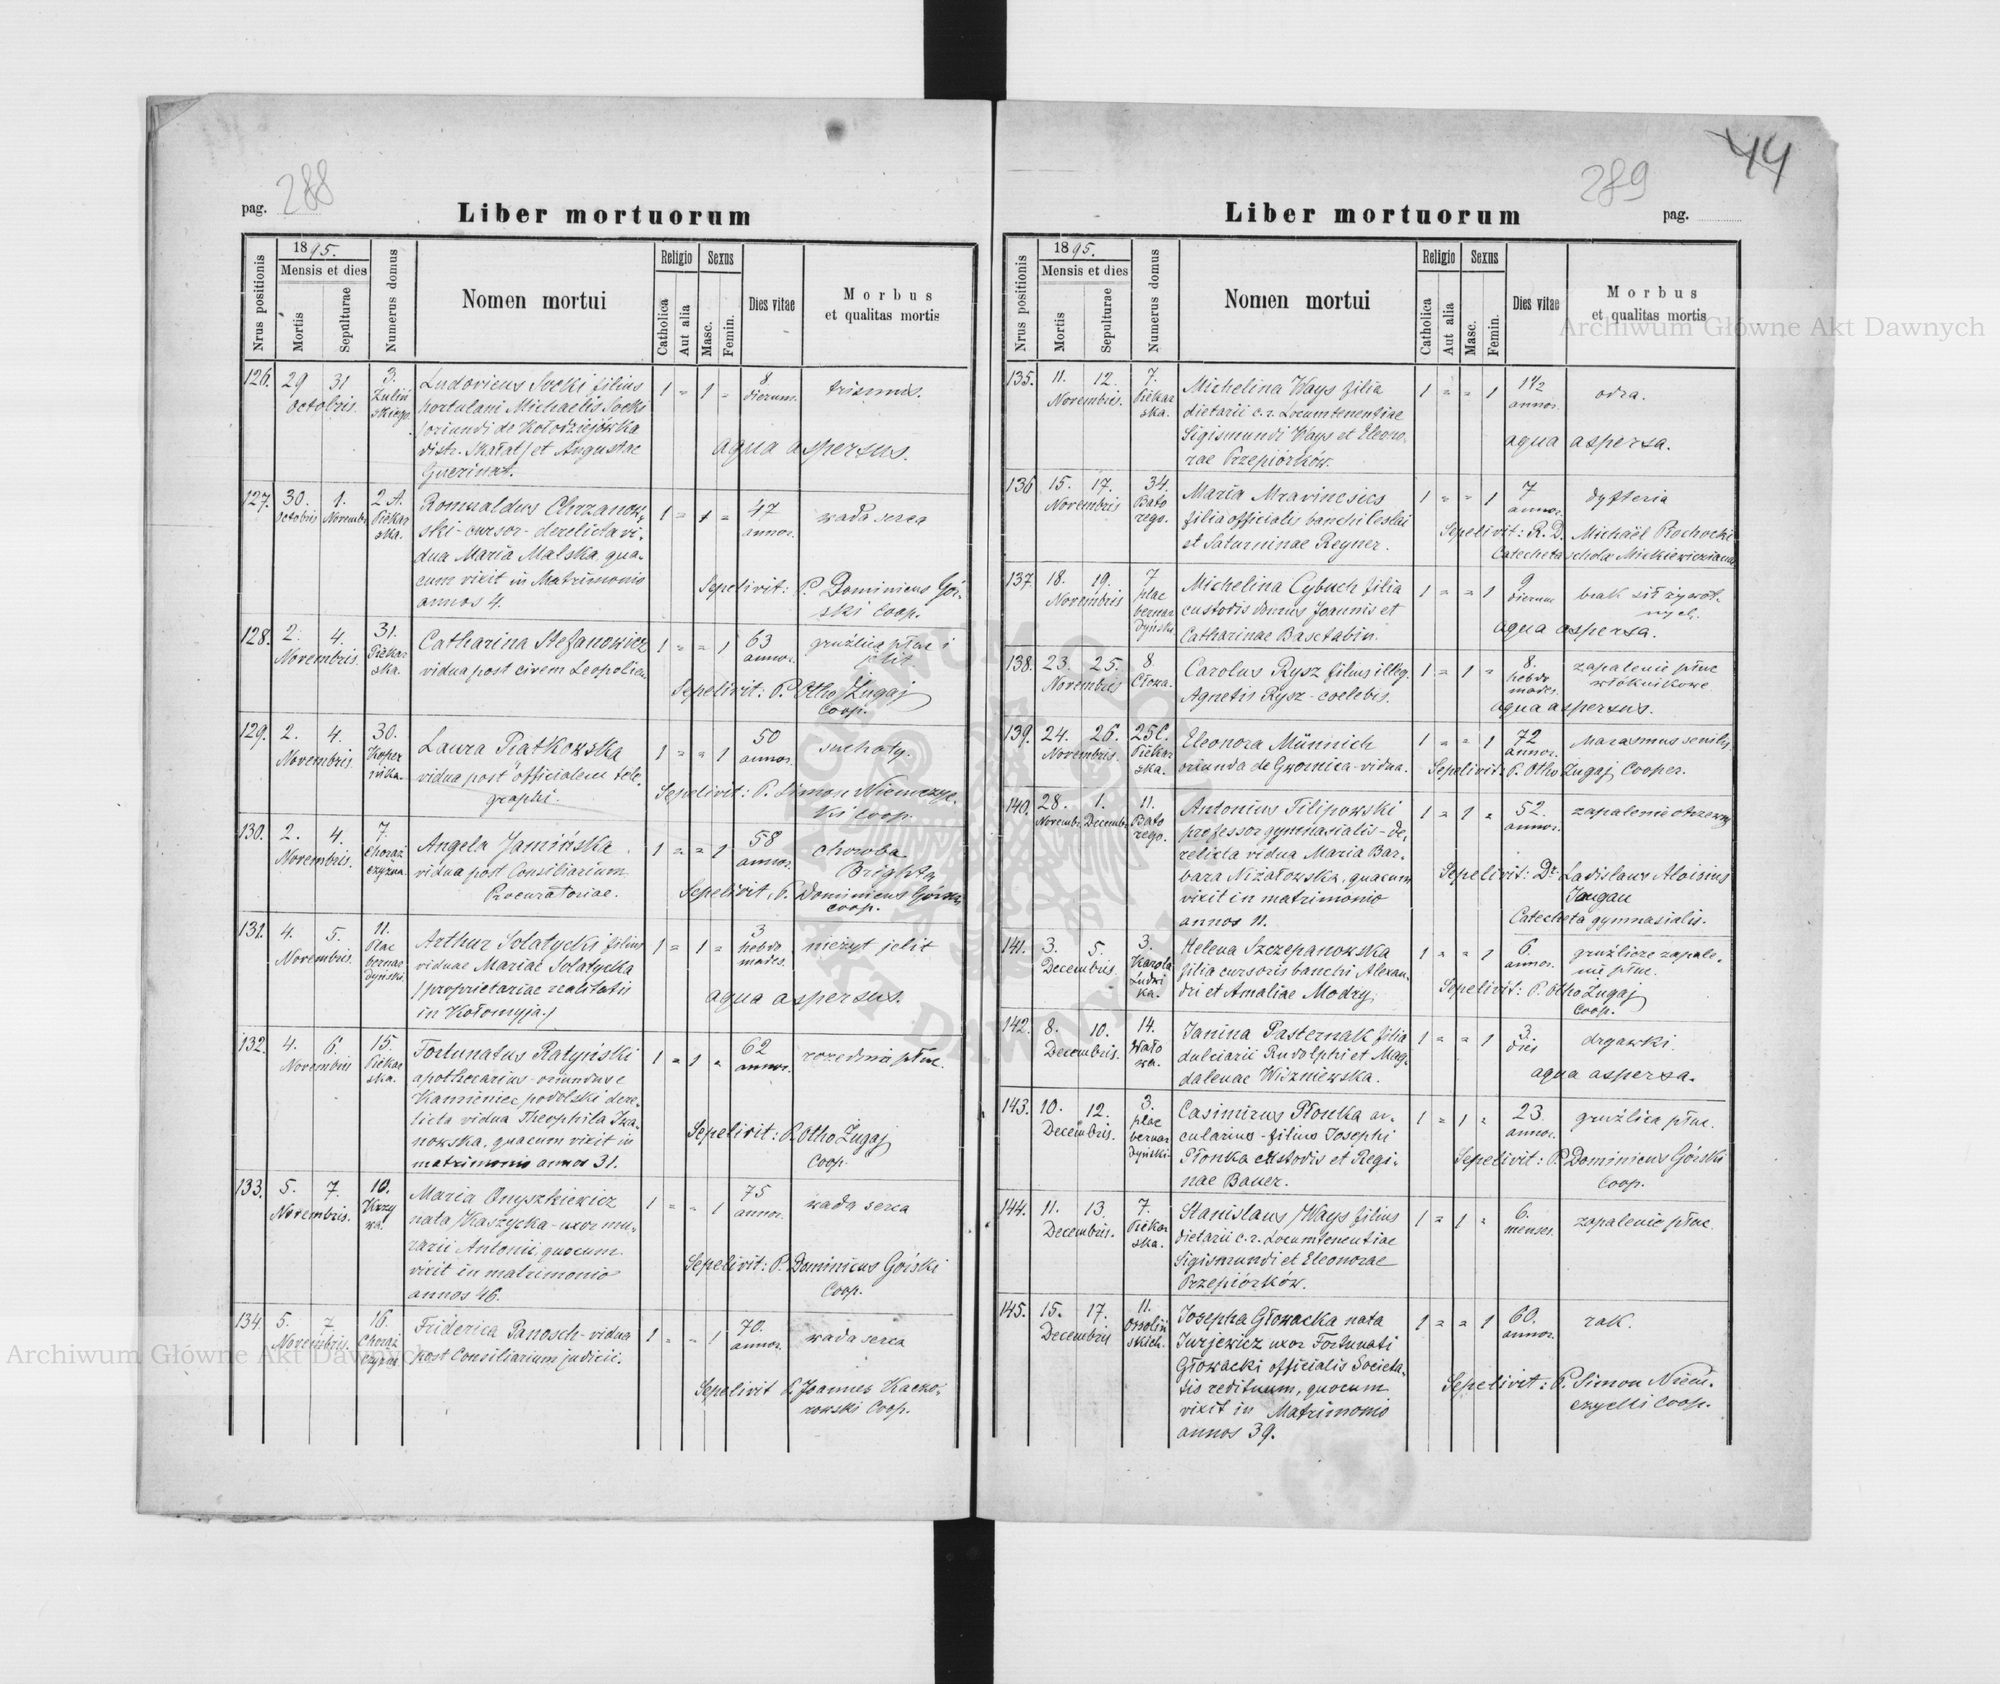 288
pag.
Liber mortuorum
Nrus positionis
1895.
Mensis et dies
Mortis
Sepulturae
Numerus domus
Nomen mortui
Religio
Catholica
Aut alia
Sexus
Masc.
Femin.
Dies vitae
Morbus
et qualitas mortis
126. 29 31 Octobris. 3. Zuliń
skiego.
Ludovicus Socki filius
portulani Michaelis Socki
/oriundi de Kołodziejówka
distr. Skałat/ et Augustae
1 = 1 = 8 dierum. trismus.
aqua aspersus.
127. 30. Octobris 1. Novembr. 2 A. Piekar
ska.
Romualdus Chrzanow,
ski - cursor - derelicta vi,
dua Maria Malska, qua,
cum vixit in Matrimonio
annos 4.
1 = 1 = 47 annor. wada serca
Sepelivit: P. Dominicus Gór,
ski Coop.
128. 2. 4. Novembris. 31. Piekar
ska.
Catharina Stefanowicz
vidua post civem Leopolien.
1 = = 1 63 annor. gruźlica płuc i
jelit
Sepelivit: P. Otho Zugaj
Coop.
129. 2. 4. Novembris. 30. Koper
nika.
Laura Piatkowska
vidua post officialem tele,
graphi.
1 = = 1 50 annor. suchoty.
Sepelivit: P. Simon Niemczyc,
ki Coop.
130. 2. 4. Novembris. 7. Chorąż
czyzna.
Angela Jamińska
vidua post Consiliarium
Procuratoriae.
1 = = 1 58 annor. choroba
Brighta
Sepelivit, P. Dominicus Górski
coop.
131. 4. 5. Novembris. 11. Plac
bernar
dyński.
Arthur Solatycki filius
viduae Mariae Solatycka
/proprietariae realitatis
in Kołomyja./
1 = 1 = 3 hebdo
mades. nieżyt jelit
aqua aspersus.
132. 4. 6. Novembris 15. Piekar
ska.
Fortunatus Ratyński
apothecarius - oriundus e
Kamieniec podolski dere,
licta vidua Theophila Iwa,
nowska, quacum vixit in
matrimonio annos 31.
1 = 1 = 62 annor. rozedma płuc.
Sepelivit: P. Otho Zugaj
Coop.
133. 5. 7. Novembris. 10. Krzy
wa.
Maria Onyszkiewicz
nata Kaszycka - uxor mu,
rarii Antonii, quocum
vixit in matrimonio
annos 46.
1 = = 1 75 annor. wada serca
Sepelivit: P. Dominicus Górski
Coop.
134. 5. 7. Novembris. 16. Chorąż
czyzna
Friderica Panosch - vidua
post Consiliarium judicii.
1 = = 1 70. annor. wada serca
Sepelivit P. Joannes Kaczo,
rowski Coop.
289
44
Liber mortuorum
pag.
Nrus positionis
1895.
Mensis et dies
Mortis
Sepulturae
Numerus domus
Nomen mortui
Religio
Catholica
Aut alia
Sexus
Masc.
Femin.
Dies vitae
Morbus
et qualitas mortis
135. 11. 12. Novembris. 7. Piekar
ska.
Michelina Ways filia
dietarii c. r. Locumtenentiae
Sigismundi Ways et Eleono,
rae Przepiórków.
1 = = 1 1 1/2 annor. odra.
aqua aspersa.
136 15. 17. Novembris 34. Bato
rego.
Maria Mravincsics
filia officialis banchi Ceslai
et Saturninae Reyner.
1 = = 1 7 annor. dyfteria
Sepelivit: R. D. Michaël
Catecheta scholae Mickiewicziana
137. 18. 19. Novembris 7 plac
bernar
dyński
Michelina Cybuch filia
custodis domus Joannis et
Catharinae Basetabin.
1 = = 1 9 dierum brak sił żywot,
nych.
aqua aspersa.
138. 23. 25. Novembris 8. Cłowa.
Carolus Rysz filius illeg.
Agnetis Rysz - coelebis.
1 = 1 = 8. hebdo
mades. zapalenie płuc
włóknikowe
aqua aspersus.
139. 24. 26. Novembris. 25 C. Piekar
ska.
Eleonora Münnich
oriunda de Gwoznica - vidua.
1 = = 1 72 annor. Marasmus senilis
Sepelivit: P. Otho Zugaj Cooper.
140. 28. Novembr. 1. Decembr. 11. Bato
rego.
Antonius Filipowski
professor gymnasialis - de,
relicta vidua Maria Bar,
bara Niżałowska, quacum
vixit in matrimonio
annos 11.
1 = 1 = 52. annor. zapalenie otrzewny
Sepelivit: Dr. Ladislaus Aloisius
Jougan
Catecheta gymnasialis.
141. 3. 5. Decembris. 3. Karola
Ludwi
ka.
Helena Szczepanowska
filia cursoris banchi Alexan,
dri et Amaliae Modry.
1 = = 1 6. annor. gruźlicze zapale,
nie płuc.
Sepelivit: P. Otho Zugaj
Coop.
142. 8. 10. Decembris. 14. Wało
wa.
Janina Pasternak filia
dulciarii Rudolphi et Mag,
dalenae Wiszniewska.
1 = = 1 3. dies drgawki.
aqua aspersa.
143. 10. 12. Decembris. 3. plac
bernar
dyński.
Casimirus Płonka ar,
cularius - filius Josephi
Płonka custodis et Regi,
nae Bauer.
1 = 1 = 23 annor. gruźlica płuc.
Sepelivit: P. Dominicus Górski
Coop.
144. 11. 13. Decembris. 7. Piekar
ska.
Stanislaus Ways filius
dietarii c. r. Locumtenentiae
Sigismundi et Eleonorae
Przepiórków.
1 = 1 = 6. menses. zapalenie płuc.
145. 15. 17. Decembris 11. Ossoliń
skich.
Josepha Głowacka nata
Jurjewicz uxor Fortunati
Głowacki officialis Societa,
tis redituum, quocum
vixit in Matrimonio
annos 39.
1 = = 1 60. annor. rak.
Sepelivit: P. Simon Niem,
czycki Coop.
Archiwum Główne Akt Dawnych
Archiwum Główne Akt Dawnych